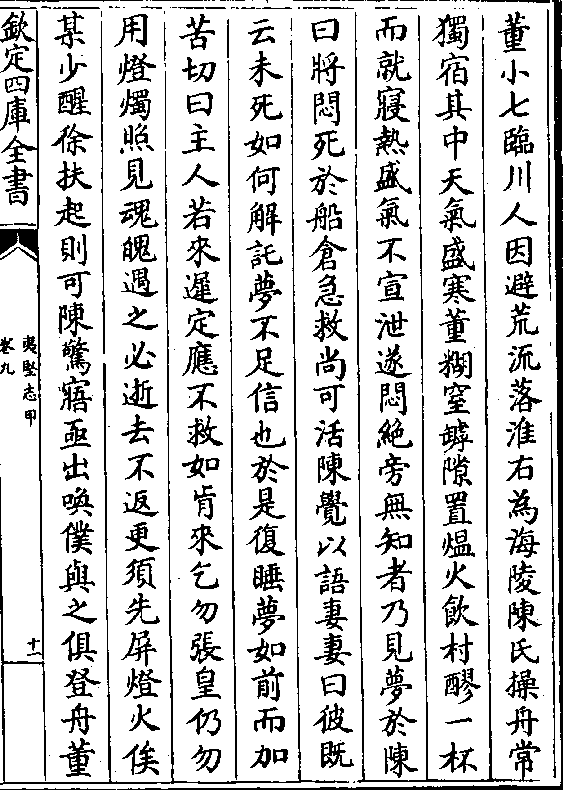 董小七臨川人因避荒流落淮右為海陵陳氏操舟常
獨宿其中天氣盛寒董糊窒罅隙置熅火飲村醪一杯
而就寢熱盛氣不宣泄遂悶絶旁無知者乃見夢於陳
曰將悶死於船倉急救尚可活陳覺以語妻妻曰彼既
云未死如何解託夢不足信也於是復睡夢如前而加
苦切曰主人若來遲定應不救如肯來乞勿張皇仍勿
用燈燭照見魂魄遇之必逝去不返更須先屏燈火俟
某少醒徐扶起則可陳驚寤亟出喚僕與之俱登舟董
欽定四庫全書
夷堅志甲
卷九
十一